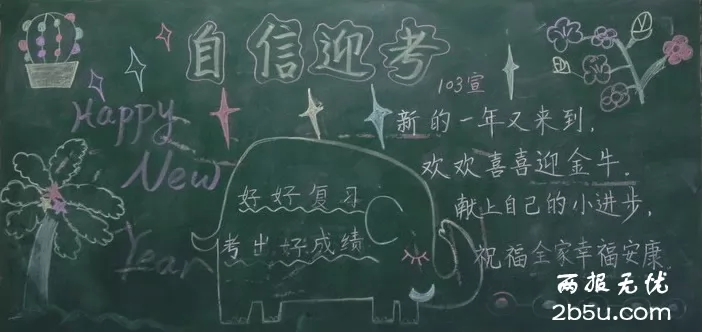 自信迎考
Happy
New
Year
好好复习
考出好成绩
103宣
新的一年又来到,
欢欢喜喜迎金牛.
献上自己的小进步,
祝福全家幸福安康.
两报无忧
2b5u.com